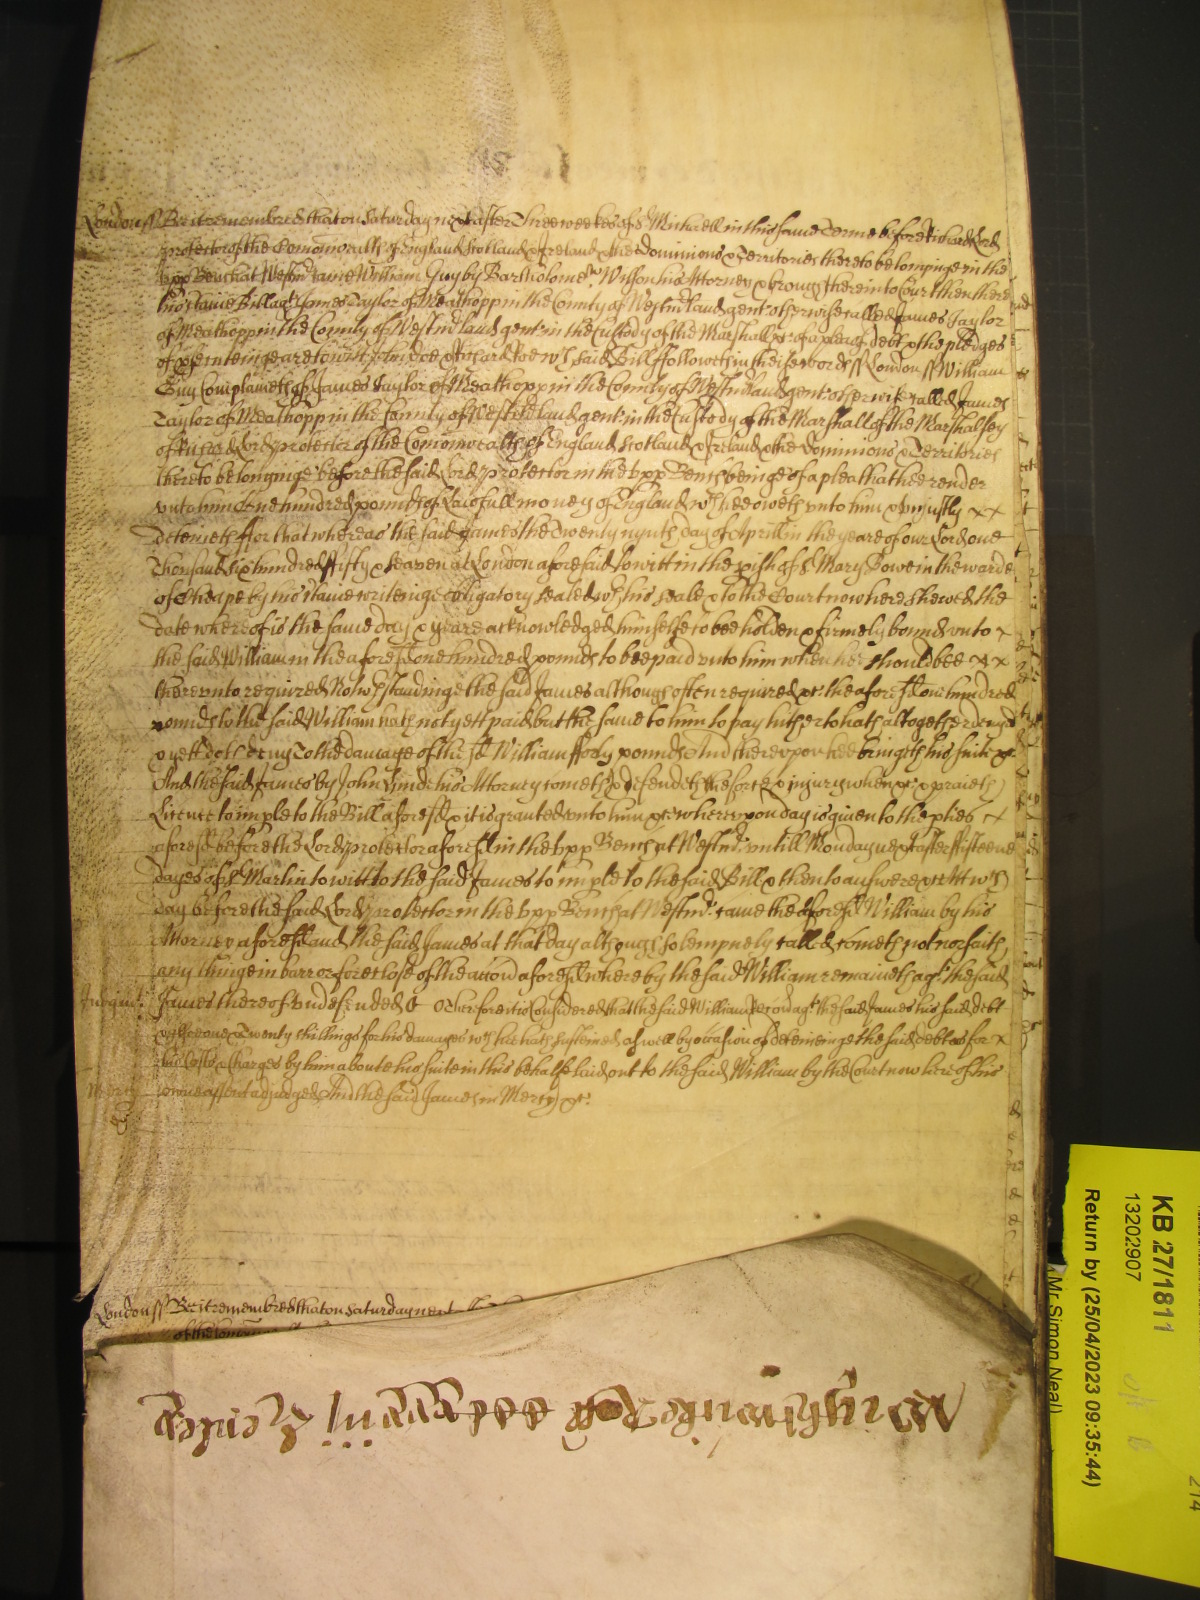 London ss Bee it remembred that on Saturday next after Three weekes of St Michaell in this same Terme before Richard Lord
protector of the Comonwealth of England Scotland & Ireland & the Dominions & Territories thereto belonginge in the
upp Bench at Westmr came William Guy by Bartholomew Wilson his Attorney & brought here into Court then there
his certaine Bill agt James Taylor of Meathopp in the County of Westmland gent otherwise called James Taylor
of Meathopp in the County of Westmland gent in the Custody of the Marshall &c of a plea of debt & the pledges
of prosecuteinge are to witt John Doe & Richard Roe wch said Bill followeth in theise words ss London ss William
Guy Complaineth of James Taylor of Meathopp in the County of Westmland gent otherwise called James
Taylor of Meathopp in the County of Westmland gent in the Custody of the Marshall of the Marshalsey
of Richard Lord protector of the Comonwealth of England Scotland & Ireland & the Dominions & Territories
thereto belonginge before the said Lord protector in the upp Bench beinge of a plea that hee render
unto him One hundred pounds of Lawfull money of England wch hee oweth unto him & uniustly x x
deteineth ffor that whereas the said James the Twenty nynth day of Aprill in the yeare of our Lord one
Thousand six hundred ffifty & seaven at London aforesaid to witt in the pish of St Mary Bowe in the warde
of Cheape by his certaine writeinge obligatory sealed wth his seale & to the Court now here shewed the
date whereof is the same day & yeare acknowledged himselfe to bee holden & firmely bound unto x
the said William in the aforesd one hundred pounds to bee paid unto him when hee should bee x x
thereunto required Notwthstandinge the said James although often required &c the aforesd one hundred
pounds to the said William hath not yett paid but the same to him to pay hitherto hath altogether denyed
& yett doth deny To the damage of the sd William fforty pounds And thereupon hee bringeth his suite &c
And the said James by John his Attorney cometh & defendeth the force & iniury when &c & prayeth
Licence to imple to the Bill aforesd & it is granted unto him &c whereupon day is given to the pties x
aforesd before the Lord protector aforesd in the upp Bench at Westmr untill Monday next after ffifteene
dayes of St Martin to witt to the said James to imple to the said Bill & then to answere &c Att wch
day before the said Lord protector in the upp Bench at Westmr came the aforesd William by his
Attorney aforesd and the said James at that day although solempnely called cometh not nor saith
any thinge in barr or foreclose of the accon aforesd whereby the said William remaineth agt the said
Judgmt James thereof undefended &c Therefore it is Considered that the said William recover agt the said James his said debt
& alsoe one & Twenty shillings for his damages wch hee hath susteined aswell by occasion of deteininge the said debt as for x
his Costs & Charges by him aboute his suite in this behalfe laid out to the said William by the Court now here of his
Mercy owne assent adjudged And the said James in Mercy &c
London ss Bee it remembred that on Saturday next
of the Comon
KB 27/1811
13202907
Return by (25/04/2023 09:35:44)
Mr Simon Neal)
214